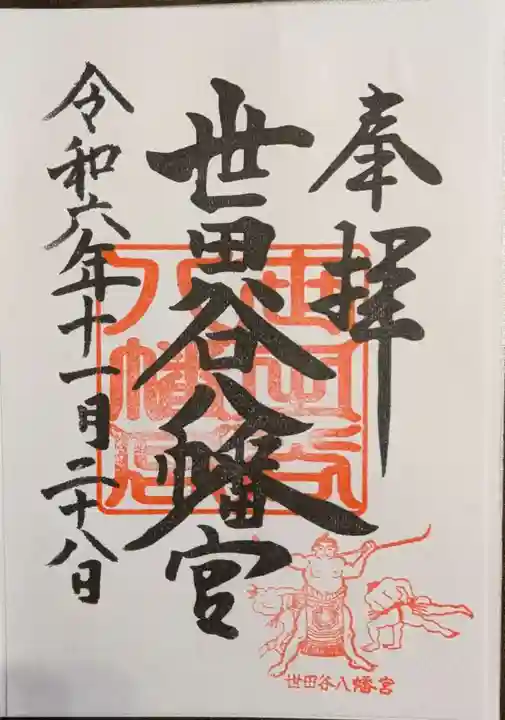 奉拝
世田谷八幡宮
令和六年十一月二十八日
世田谷八幡宮